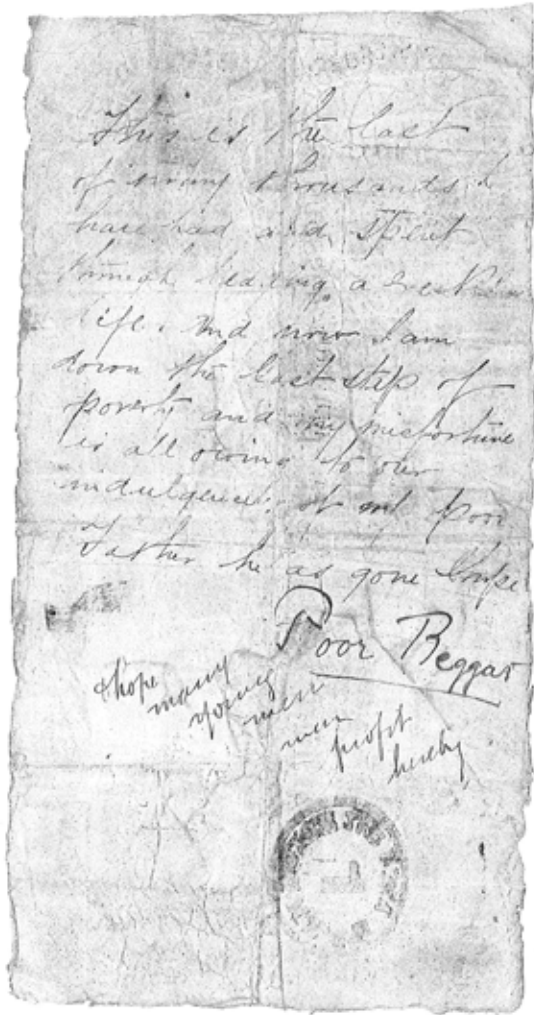 This is the last
of many thousands I
have had and spent
through leading a
life. And now I am
down the last step of
poverty and my misfortune
is all owing to our
indulgence of my poor
Father he as gone
Poor Beggar
I hope
many
young
men
profit
hereby